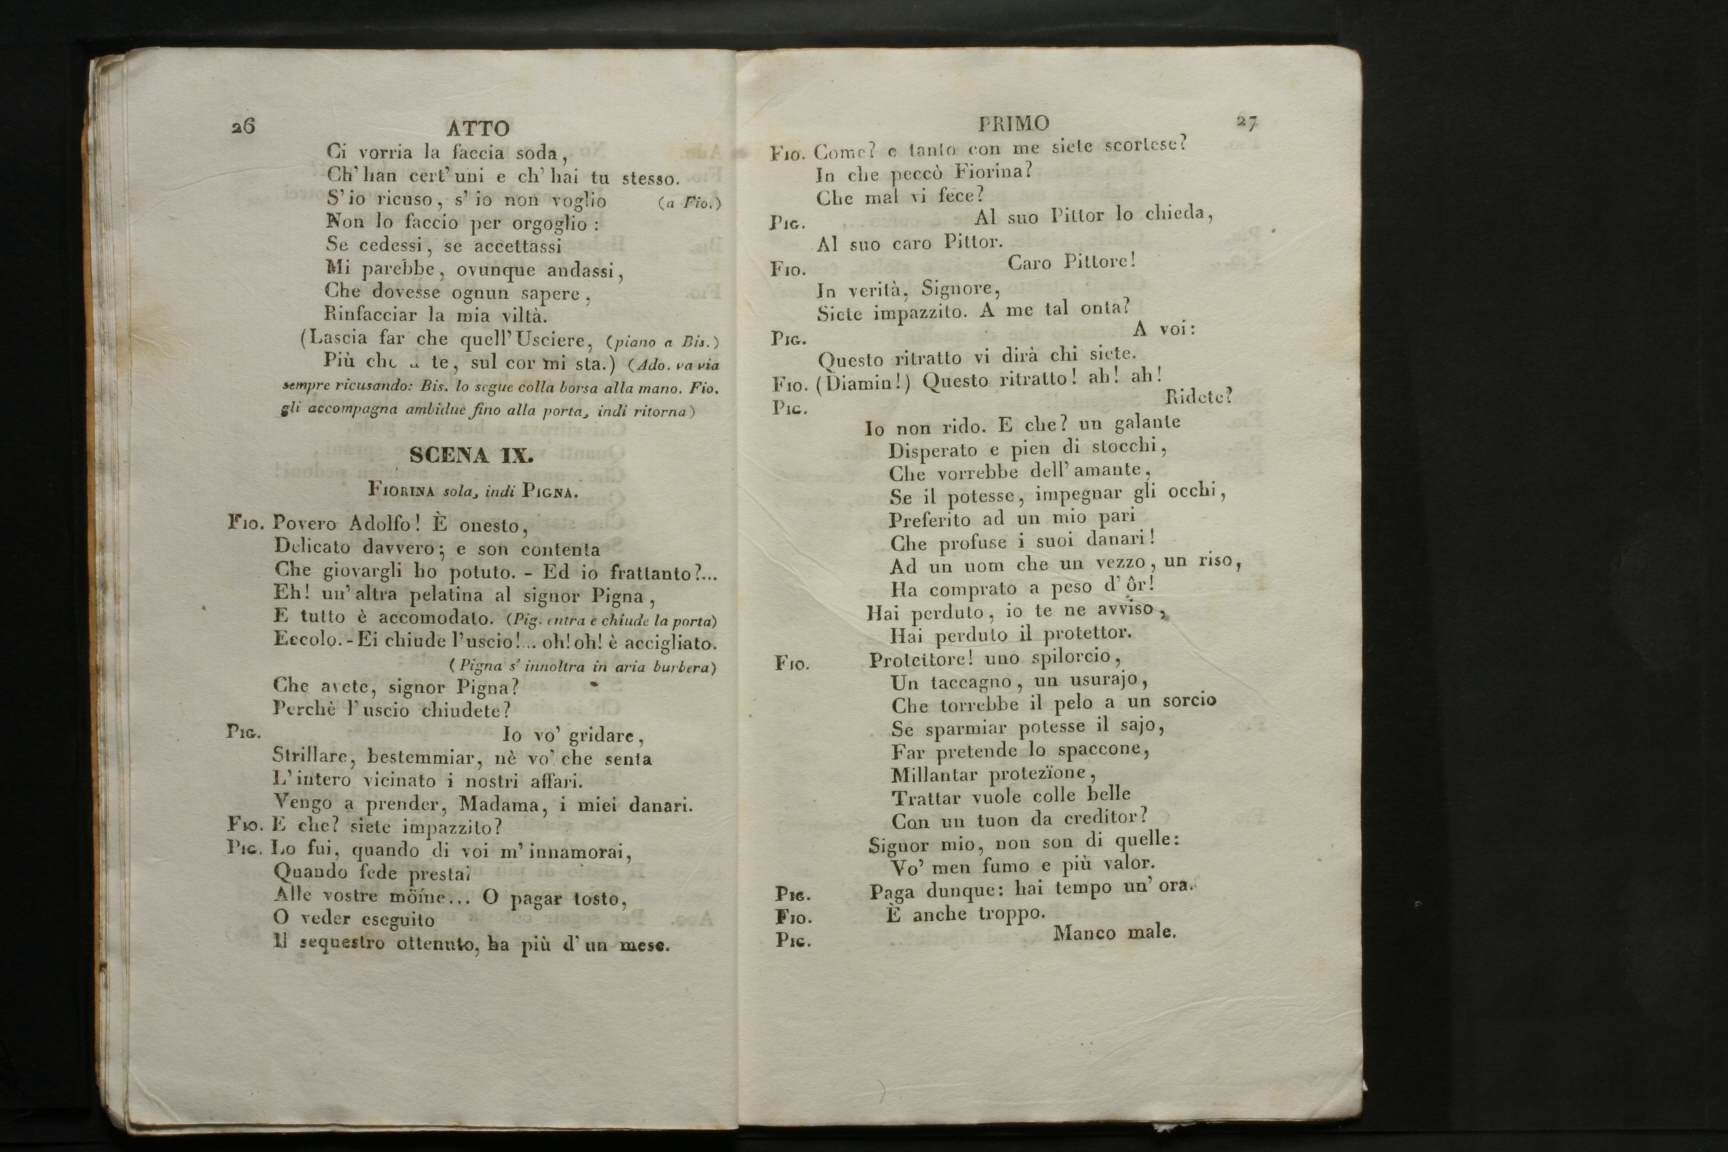 26
ATTO
Ci vorria la faccia soda,
Ch' han cert' uni e ch' hai tu stesso.
S' io ricuso, s' io non voglio (a Fio.)
Non lo faccio per orgoglio :
Se cedessi, se accettassi
Mi parebbe, ovunque andassi,
Che dovesse ognun sapere,
Rinfacciar la mia viltà.
(Lascia far che quell' Usciere, (piano a Bis.)
Più che a te, sul cor mi sta.) (Ado. va via
sempre ricusando: Bis. lo segue colla borsa alla mano. Fio.
gli accompagna ambidue fino alla porta, indi ritorna)
SCENA IX.
FIORINA sola, indi PIGNA.
FIO. Povero Adolfo! È onesto,
Delicato davvero; e son contenta
Che giovargli ho potuto. - Ed io frattanto?...
Eh! un' altra pelatina al signor Pigna,
E tutto è accomodato. (Pig. entra e chiude la porta)
Eccolo. - Ei chiude l'uscio!... oh! oh! è accigliato.
(Pigna s' innoltra in aria burbera)
Che avete, signor Pigna?
Perchè l' uscio chiudete?
PIG. Io vo' gridare,
Strillare, bestemmiar, nè vo' che senta
L' intero vicinato i nostri affari.
Vengo a prender, Madama, i miei danari.
FIO. E che? siete impazzito?
PIG. Lo fui, quando di voi m' innamorai,
Quando fede prestai
Alle vostre moine... O pagar tosto,
O veder eseguito
Il sequestro ottenuto, ha più d' un mese.
PRIMO
27
FIO. Come? e tanto con me siete scortese?
In che peccò Fiorina?
Che mal vi fece?
PIG. Al suo Pittor lo chieda,
Al suo caro Pittor.
FIO. Caro Pittore!
In verità, Signore,
Siete impazzito. A me tal onta?
PIG. A voi:
Questo ritratto vi dirà chi siete.
FIO. (Diamin!) Questo ritratto! ah! ah!
PIG. Ridete?
Io non rido. E che? un galante
Disperato e pien di stocchi,
Che vorrebbe dell' amante,
Se il potesse, impegnar gli occhi,
Preferito ad un mio pari
Che profuse i suoi danari!
Ad un uom che un vezzo, un riso,
Ha comprato a peso d' ôr!
Hai perduto, io te ne avviso,
Hai perduto il protettor.
FIO. Protettore! uno spilorcio,
Un taccagno, un usurajo,
Che torrebbe il pelo a un sorcio
Se sparmiar potesse il sajo,
Far pretende lo spaccone,
Millantar protezïone,
Trattar vuole colle belle
Con un tuon da creditor?
Signor mio, non son di quelle:
Vo' men fumo e più valor.
PIG. Paga dunque: hai tempo un' ora.
FIO. È anche troppo.
PIG. Manco male.